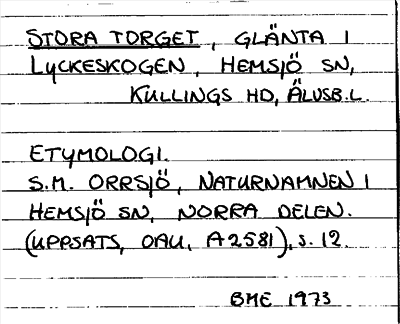 STORA TORGET, GLÄNTA I
LYCKESKOGEN, HEMSJÖ SN,
KULLINGS HD, ÄLVSB.L.
ETYMOLOGI.
S.M. ORRSJÖ, NATURNAMNEN I
HEMSJÖ SN, NORRA DELEN.
(UPPSATS, OAU, A2581), s. 12.
BME 1973